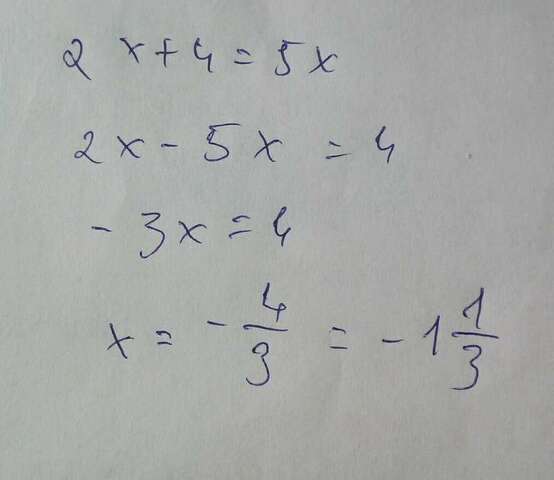 2x+4=5x
2x-5x=4
-3x=4
x=-4/3=-1 1/3